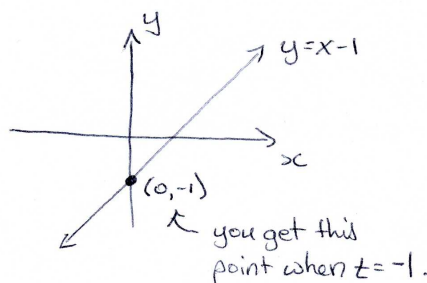 y
y=x-1
x
(0,-1)
you get this
point when t=-1.